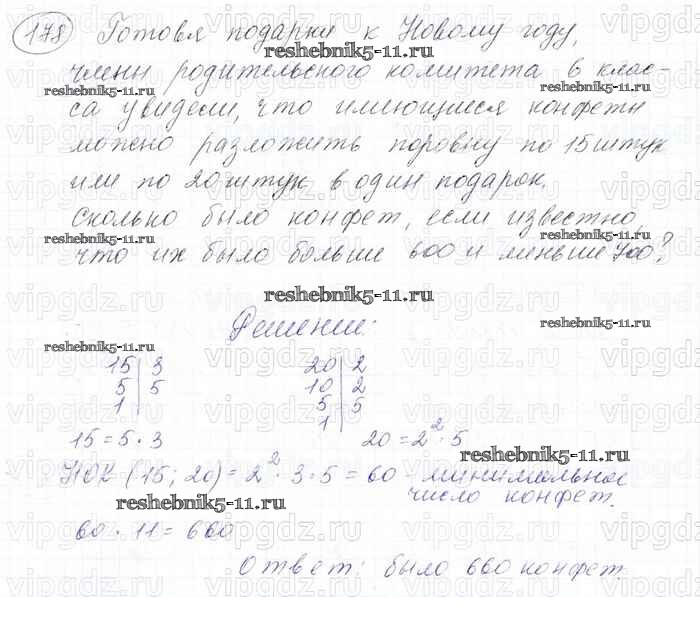 178 Готовя подарки к Новому году,
члены родительского комитета в клас-
са увидели, что имеющиеся конфеты
можно разложить поровну по 15 штук
или по 20 штук в один подарок.
Сколько было конфет, если известно,
что их было больше 600 и меньше 700?
Решение:
15 | 3 20 | 2
5 | 5 10 | 2
1 | 5 | 5
1 |
15 = 5 · 3 20 = 2² · 5
НОК (15; 20) = 2² · 3 · 5 = 60 - минимальное
число конфет.
60 · 11 = 660
Ответ: было 660 конфет.
reshebnik5-11.ru
reshebnik5-11.ru
reshebnik5-11.ru
reshebnik5-11.ru
reshebnik5-11.ru
reshebnik5-11.ru
reshebnik5-11.ru
reshebnik5-11.ru
reshebnik5-11.ru
reshebnik5-11.ru
vipgdz.ru